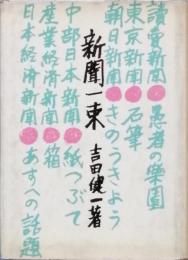 讀売新聞●愚者の楽園
東京新聞●石筆
朝日新聞●きのうきょう
新聞一束 吉田健一著
中部日本新聞●紙つぶて
産業経済新聞●箱
日本経済新聞●あすへの話題